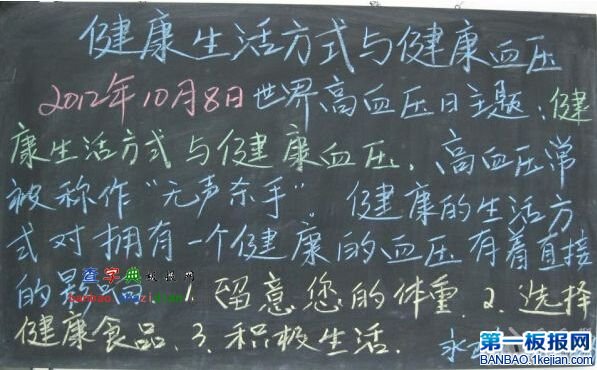 健康生活方式与健康血压
2012年10月8日世界高血压日主题:健
康生活方式与健康血压,高血压常
被称作“无声杀手”。健康的生活方
式对拥有一个健康的血压有着直接
的影 1、留意您的体重. 2. 选择
查字典
健康食品. 3. 积极生活.
第一板报网
BANBAO.1kejian.com